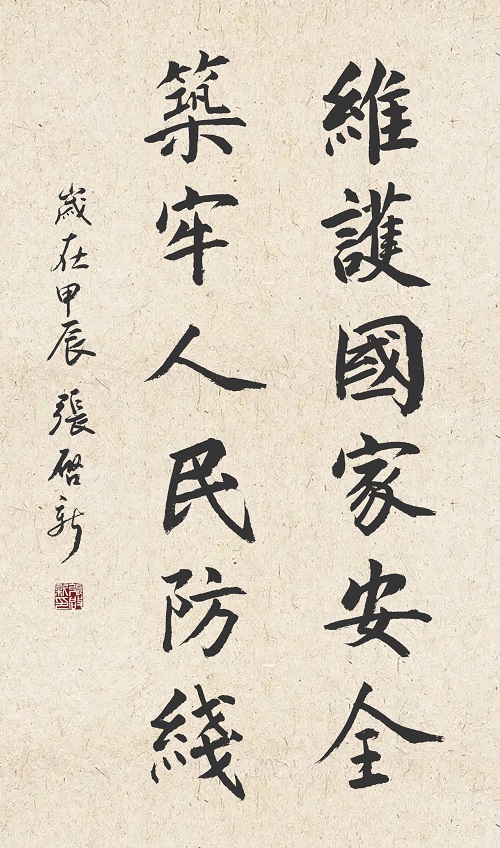 維護國家安全
築牢人民防綫
歲在甲辰 張啓新